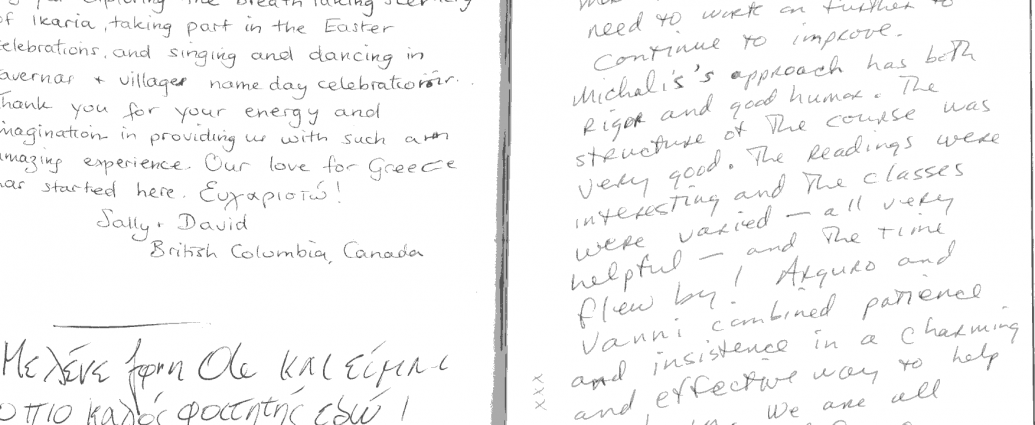 of Ikaria, taking part in the Easter
elebrations, and singing and dancing in
avernas + villages name day celebrations.
hank you for your energy and
magination in providing us with such an
mazing experience. Our love for Greece
as started here. Ευχαριστώ!
Sally + David
British Colombia, Canada
Με λένε και είμαι
ο πιο καλός φοιτητής εδώ!
need to work on further to
continue to improve.
Michalis's approach has both
rigor and good humor. The
structure of the course was
very good. The readings were
interesting and the classes
were varied — all very
helpful — and the time
flew by! Arguro and
Vanni combined patience
and insistence in a charming
and effective way to help
We are all
xxx